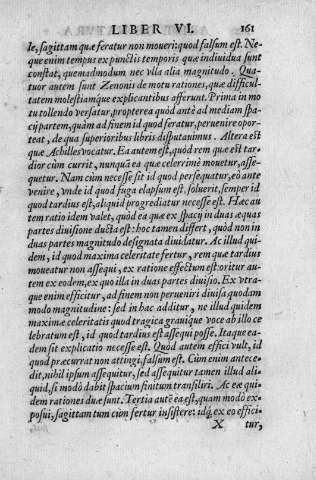 LIBER VI. 161
le, sagittam quæ feratur non moueri: quod falsum est. Ne-
que enim tempus ex punctis temporis quæ indiuidua sunt
constat, quemadmodum nec vlla alia magnitudo. Qua-
tuor autem sunt Zenonis de motu rationes, quæ difficul-
tatem molestiamque explicantibus afferunt. Prima in mo
tu tollendo versatur, propterea quòd antè ad mediam spa
cij partem, quàm ad finem id quod feratur, peruenire opor-
teat, de qua superioribus libris disputauimus. Altera est
quæ Achilles vocatur. Ea autem est, quòd rem quæ est tar-
dior cùm currit, nunquā ea quæ celerrimè mouetur, asse-
quetur. Nam cùm necesse sit id quod persequatur, eò ante
venire, vnde id quod fuga elapsum est, soluerit, semper id
quod tardius est, aliquid progrediatur necesse est. Hæc au
tem ratio idem valet, quòd ea quæ ex spacij in duas æquas
partes diuisione ducta est: hoc tamen differt, quòd non in
duas partes magnitudo designata diuidatur. Ac illud qui-
dem, id quod maxima celeritate fertur, rem quæ tardius
moueatur non assequi, ex ratione effectum est: oritur au-
tem ex eodem, ex quo illa in duas partes diuisio. Ex vtra-
que enim efficitur, ad finem non perueniri diuisa quodam
modo magnitudine: sed in hac additur, ne illud quidem
maximæ celeritatis quod tragica grauique voce ab illo ce
lebratum est, id quod tardius est assequi posse. Itaque ea-
dem sit explicatio necesse est. Quòd autem effici vult, id
quod præcurrat non attingi, falsum est. Cùm enim antece-
dit, nihil ipsum assequitur, sed assequitur tamen illud ali-
quid, si modò dabit spacium finitum transiliri. Ac eæ qui-
dem rationes duæ sunt. Tertia autē ea est, quam modò ex-
posui, sagittam tum cùm fertur insistere: idq́ ex eo effici-
X tur,